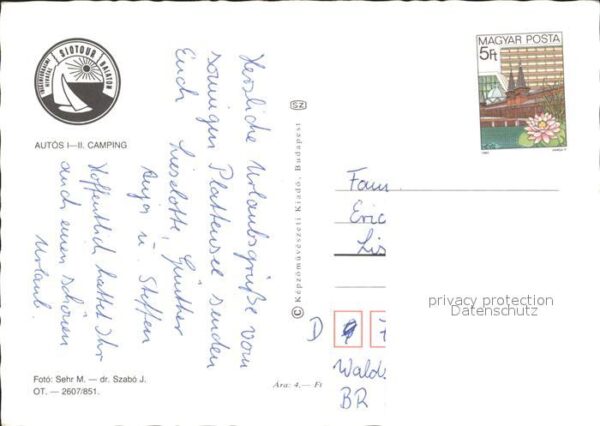 SIOTOUR BALATON
IDEGENFORGALMI HIVATAL
AUTÓS I—II. CAMPING
Herzliche Urlaubsgrüße vom
sonnigen Plattensee senden
Euch
Lieselotte, Günther
Anja u. Steffen
Hoffentlich hattet Ihr
auch einen schönen
Urlaub.
Fotó: Sehr M. — dr. Szabó J.
OT. — 2607/851.
SZ
© Képzőművészeti Kiadó, Budapest
Ára: 4,— Ft
MAGYAR POSTA
5Ft
Fam
Eric
Lis
privacy protection
Datenschutz
D
Walds
BR